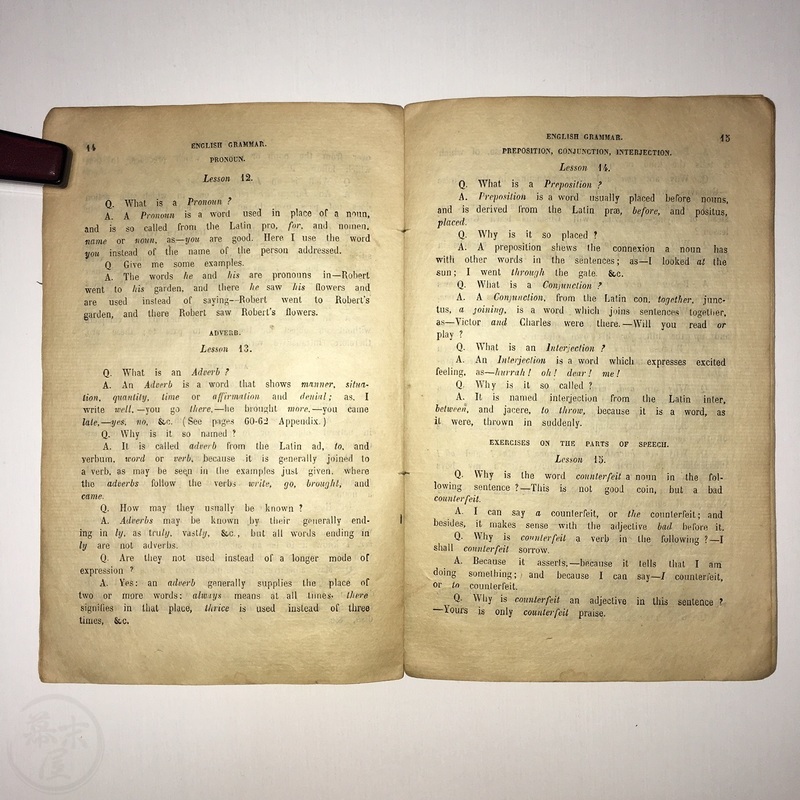 14
ENGLISH GRAMMAR.
PRONOUN.
Lesson 12.
Q. What is a Pronoun ?
A. A Pronoun is a word used in place of a noun,
and is so called from the Latin pro, for, and nomen,
name or noun, as—you are good. Here I use the word
you instead of the name of the person addressed.
Q Give me some examples.
A. The words he and his are pronouns in—Robert
went to his garden, and there he saw his flowers and
are used instead of saying—Robert went to Robert's
garden, and there Robert saw Robert's flowers.
ADVERB.
Lesson 13.
Q. What is an Adverb ?
A. An Adverb is a word that shows manner, situa-
tion, quantity, time or affirmation and denial; as, I
write well,—you go there,—he brought more,—you came
late,—yes, no, &c. (See pages 60-62 Appendix.)
Q. Why is it so named ?
A. It is called adverb from the Latin ad, to, and
verbum, word or verb, because it is generally joined to
a verb, as may be seen in the examples just given, where
the adverbs follow the verbs write, go, brought, and
came.
Q. How may they usually be known ?
A. Adverbs may be known by their generally end-
ing in ly, as truly, vastly, &c., but all words ending in
ly are not adverbs.
Q. Are they not used instead of a longer mode of
expression ?
A. Yes: an adverb generally supplies the place of
two or more words: always means at all times, there
signifies in that place, thrice is used instead of three
times, &c.
ENGLISH GRAMMAR.
15
PREPOSITION, CONJUNCTION, INTERJECTION.
Lesson 14.
Q. What is a Preposition ?
A. Preposition is a word usually placed before nouns,
and is derived from the Latin præ, before, and positus,
placed.
Q. Why is it so placed ?
A. A preposition shews the connexion a noun has
with other words in the sentences; as—I looked at the
sun; I went through the gate. &c.
Q. What is a Conjunction ?
A. A Conjunction, from the Latin con, together, junc-
tus, a joining, is a word which joins sentences together,
as—Victor and Charles were there.—Will you read or
play ?
Q. What is an Interjection ?
A. An Interjection is a word which expresses excited
feeling, as—hurrah! oh! dear! me!
Q. Why is it so called ?
A. It is named interjection from the Latin inter,
between, and jacere, to throw, because it is a word, as
it were, thrown in suddenly.
EXERCISES ON THE PARTS OF SPEECH.
Lesson 15.
Q. Why is the word counterfeit a noun in the fol-
lowing sentence ?—This is not good coin, but a bad
counterfeit.
A. I can say a counterfeit, or the counterfeit; and
besides, it makes sense with the adjective bad before it.
Q. Why is counterfeit a verb in the following ?—I
shall counterfeit sorrow.
A. Because it asserts,—because it tells that I am
doing something; and because I can say—I counterfeit,
or to counterfeit.
Q. Why is counterfeit an adjective in this sentence ?
—Yours is only counterfeit praise.
幕末屋